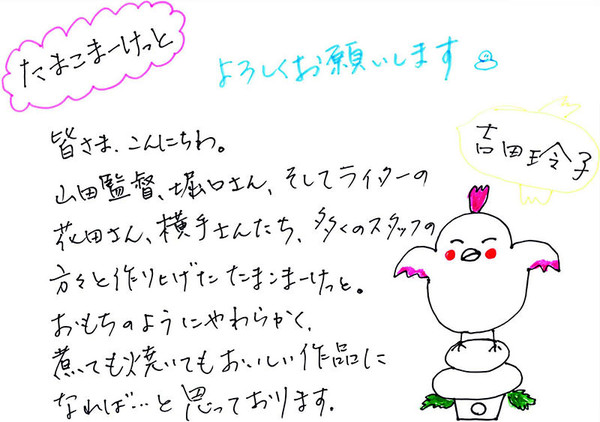 たまこまーけっと
よろしくお願いします
吉田玲子
皆さま、こんにちわ。
山田監督、堀口さん、そしてライターの
花田さん、横手さんたち、多くのスタッフの
方々と作り上げた たまこまーけっと。
おもちのようにやわらかく、
煮ても焼いてもおいしい作品に
なれば…と思っております。